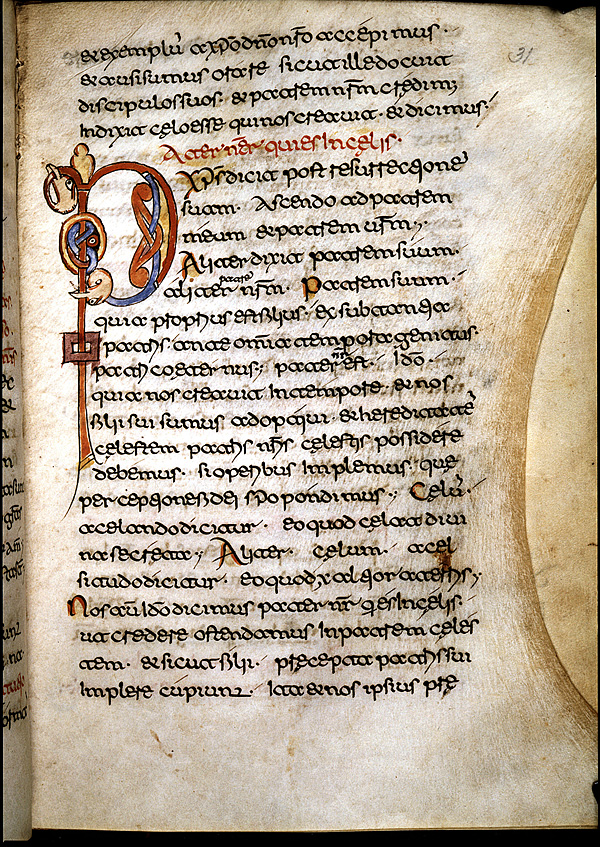 & exemplũ a xp̃o dño nr̃o accepimus ·
& ausi sumus orare sicut ille docuit
discipulos suos · & patrem nr̃m credim;
In celo esse qui nos creauit · & dicimus ·
Pater nr̃ qui es In celis ·
31
xp̃s dicit post resurrectionẽ
suam · Ascendo ad patrem
meum & patrem ur̃m ·,
Aliter dixit patrem suum ·
& aliter patrẽ nr̃m · Patrem suum ·
quia proprius est filius · ex substantia
patris · ante omnia tempora genitus ·
patri coeternus ·, pater nr̃ est · Ideo ·
quia nos creauit In tempore · & nos
filii sui sumus adoptiui · & hereditatẽ
celestem patris nr̃i celestis possidere
debemus · si operibus Implemus · que
spopondimus ·, Celũ ·
a celando dicitur · eo quod celat diui
na secreta ·, Aliter · celum · a cel
situdo dicitur · eo quod altior a terris ·,
Nos aũ Ideo dicimus pater nr̃ q̃ es In celis ·
ut credere ostendamus In patrem celes
tem · & sicut filii · precepta patris sui
Implere cupiunt · Ita & nos ipsius pre